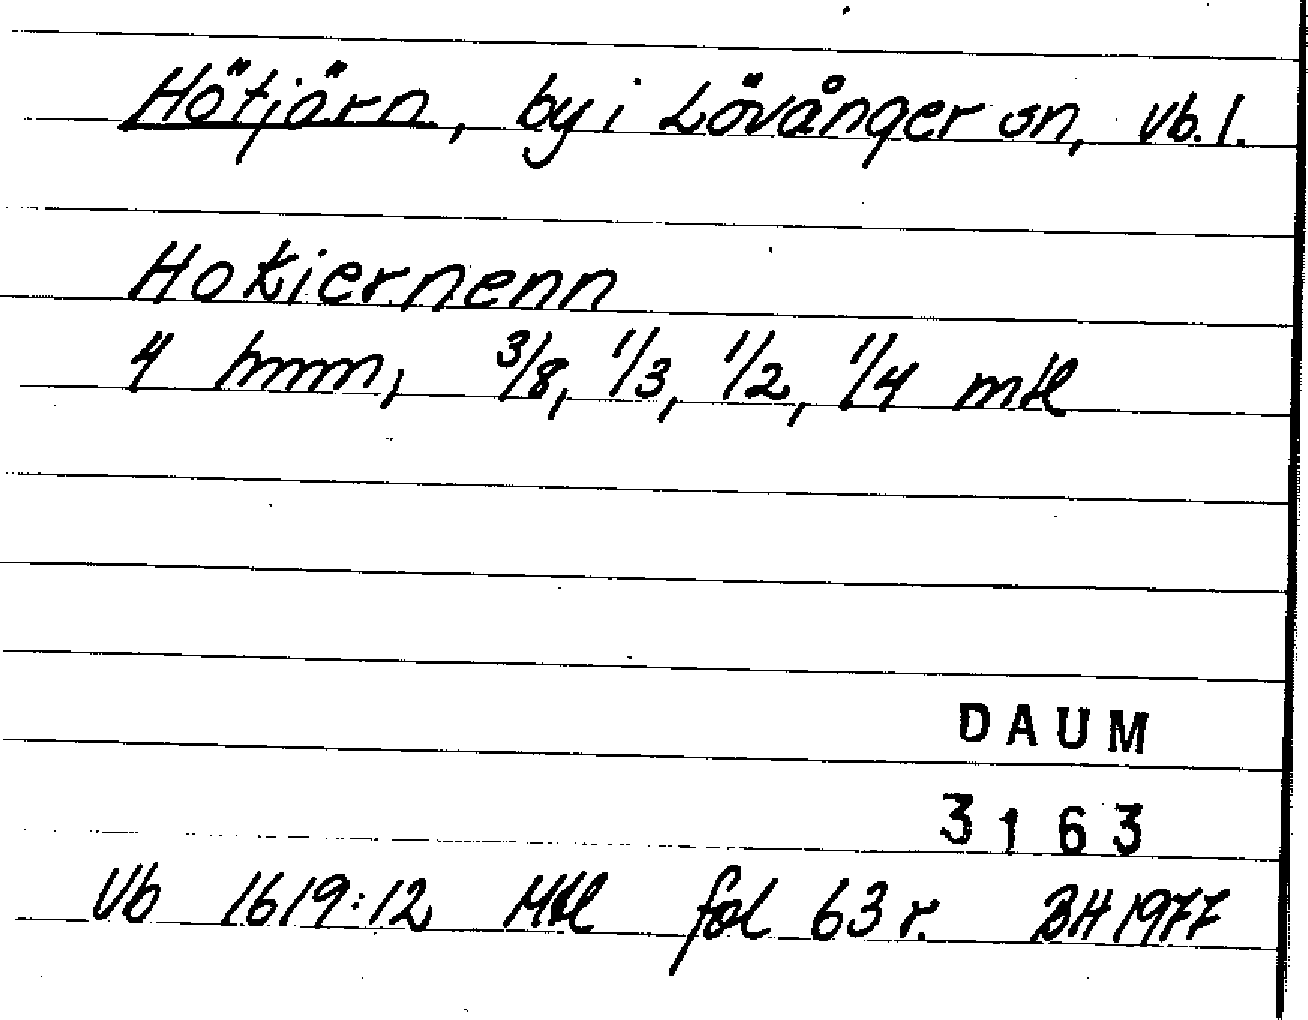 Hötjärn, by i Lövånger sn, Vb. l.
Hotiernenn
4 hmn, 3/8, 1/3, 1/2, 1/4 mtl
DAUM
3163
Vb 1619:12 Mtl fol 63 r. BH 1977